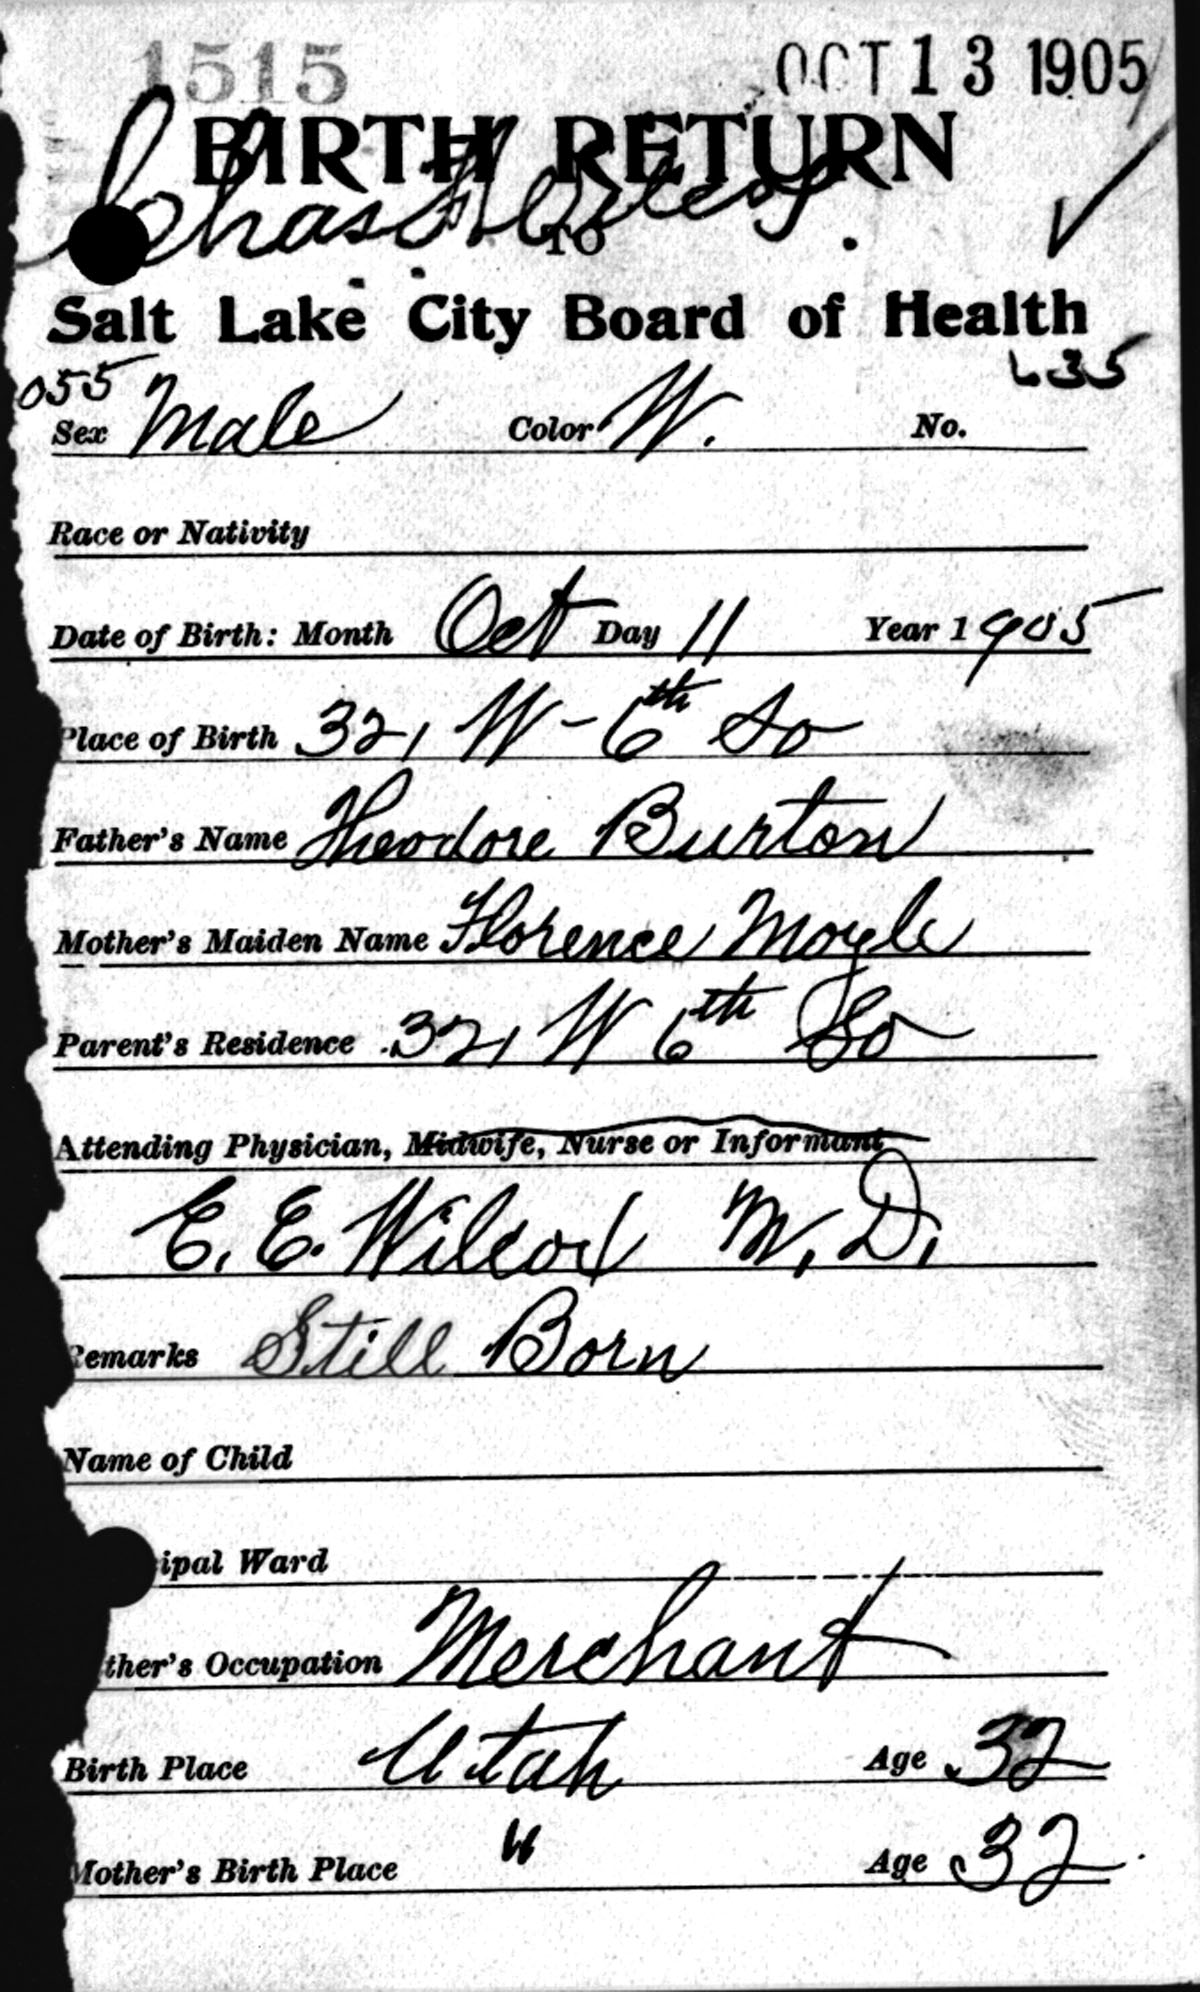 1515 OCT 13 1905
BIRTH RETURN
Chas
TO
Salt Lake City Board of Health
055 635
Sex Male Color W. No.
Race or Nativity
Date of Birth: Month Oct Day 11 Year 1905
Place of Birth 321 W - 6th So
Father's Name Theodore Burton
Mother's Maiden Name Florence Moyle
Parent's Residence 321 W 6th So
Attending Physician, Midwife, Nurse or Informant
E. E. Wilcox M. D.
Remarks Still Born
Name of Child
cipal Ward
ther's Occupation Merchant
Birth Place Utah Age 32
Mother's Birth Place " Age 32